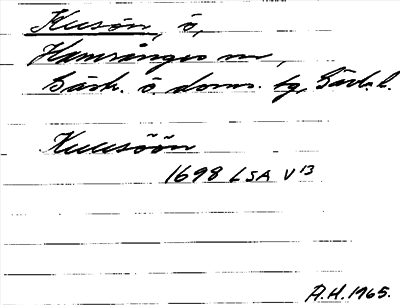 Kusön, ö,
Hamrånges sn,
Gävh. ö. doms. tg, Gävl. l.
Kuusöön
1698 LSA V 13
A.H. 1965.